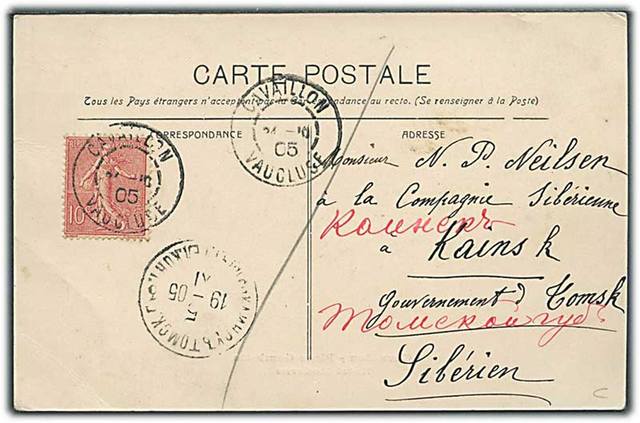 CARTE POSTALE
Tous les Pays étrangers n'acceptent pas la Correspondance au recto. (Se renseigner à la Poste)
CORRESPONDANCE
ADRESSE
CAVAILLON
05
VAUCLUSE
CAVAILLON
05
VAUCLUSE
10
Monsieur N. P. Neilsen
à la Compagnie Sibérienne
Каинскъ
à Kainsk
Gouvernement d Tomsk
Томской губ
Sibérien
КАИНСКЪ ТОМСК.
XI
19-05
5
C